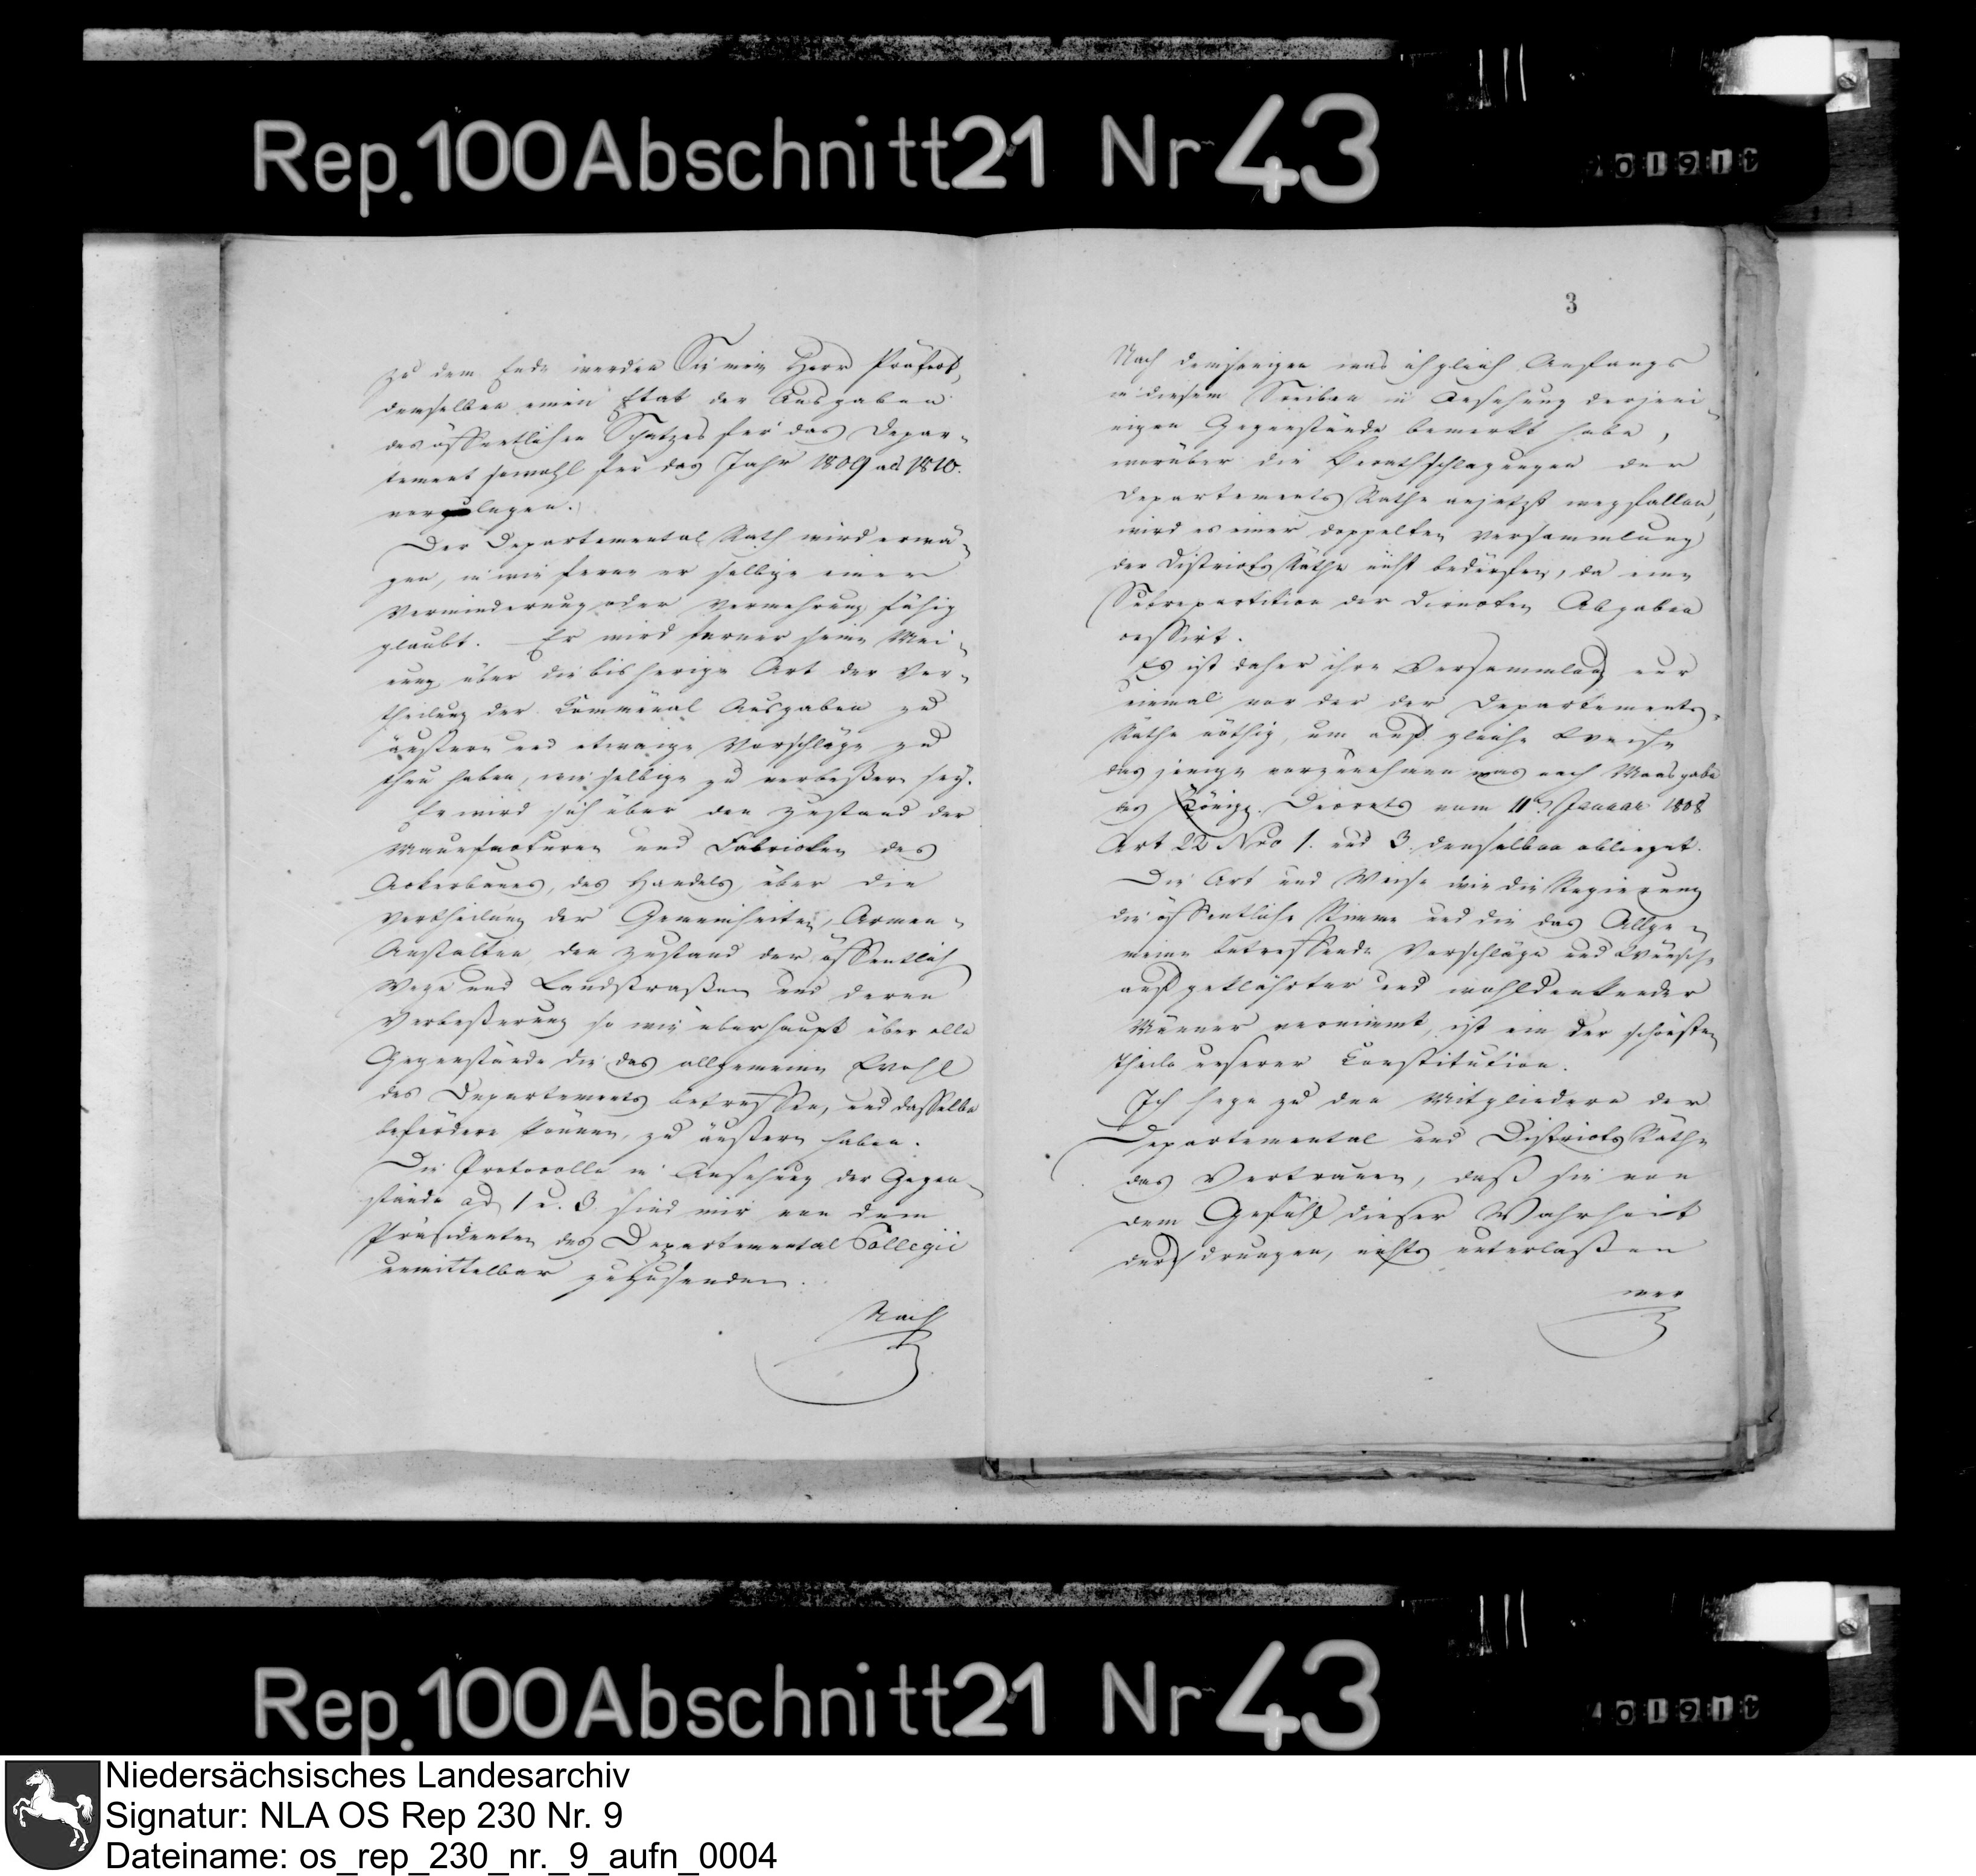 Rep.100Abschnitt21 Nr 43
zu dem Ende werden Sie mein Herr Präfect,
denselben einen Etat der Ausgaben
des öffentlichen Schatzes für das Depar-
tement sowohl für das Jahr 1809 als 1810.
vorzulegen.
Der Departemental Rath wird erwä-
gen, in wie ferne er selbige einer
Verminderung oder Vermehrung fähig
glaubt. — Er wird ferner seine Mei-
nung über die bisherige Art der Ver-
theilung der Communal Ausgaben zu
äußern und etwaige Vorschläge zu
thun haben, wie selbige zu verbeßern sey.
Er wird sich über den Zustand der
Manufacturen und Fabricken des
Ackerbaues, des Handels, über die
Vertheilung der Gemeinheiten, Armen-
Anstalten, den Zustand der öffentlich
Wege und Landstraßen und deren
Verbeßerung so wie überhaupt über alle
Gegenstände die das allgemeine Wohl
des Departements betreffen, und dasselbe
befördern können, zu äußern haben.
Die Protocolle in Ansehung der Gegen-
stände ad 1 u. 3 sind mir von dem
Präsidenten des Departemental Collegii
unmittelbar zuzusenden.
Nach
3
Nach demjenigen was ich gleich Anfangs
in diesem Schreiben in Ansehung derjeni-
nigen Gegenstände bemerkt habe,
worüber die Berathschlagungen der
Departements Räthe anjetzt wegfallen,
wird es einer doppelten Versammlung
der Districts Räthe nicht bedürfen, da eine
Subrepartition der directen Abgaben
cessirt.
Es ist daher ihre Versammlung nur
einmal vor der der Departements-
Räthe nöthig, um auf gleiche Weise
das jenige vorzunehmen was nach Maasgabe
des Königl. Decrets vom 11t Januar 1808
Art 22 Nro 1. und 3. denselben obliegt.
Die Art und Weise wie die Regierung
die öffentliche Stimme und die das Allge-
meine betreffende Vorschläge und Wünsche
aufgeklährter und wohldenkender
Männer vernimmt, ist ein der schönsten
Theile unserer Constitution.
Ich hege zu den Mitgliedern der
Departemental und Districts Räthe
das Vertrauen, daß sie von
dem Gefühl dieser Wahrheit
durchdrungen, nichts unterlaßen
wer
Rep.100Abschnitt21 Nr 43
Niedersächsisches Landesarchiv
Signatur: NLA OS Rep 230 Nr. 9
Dateiname: os_rep_230_nr._9_aufn_0004